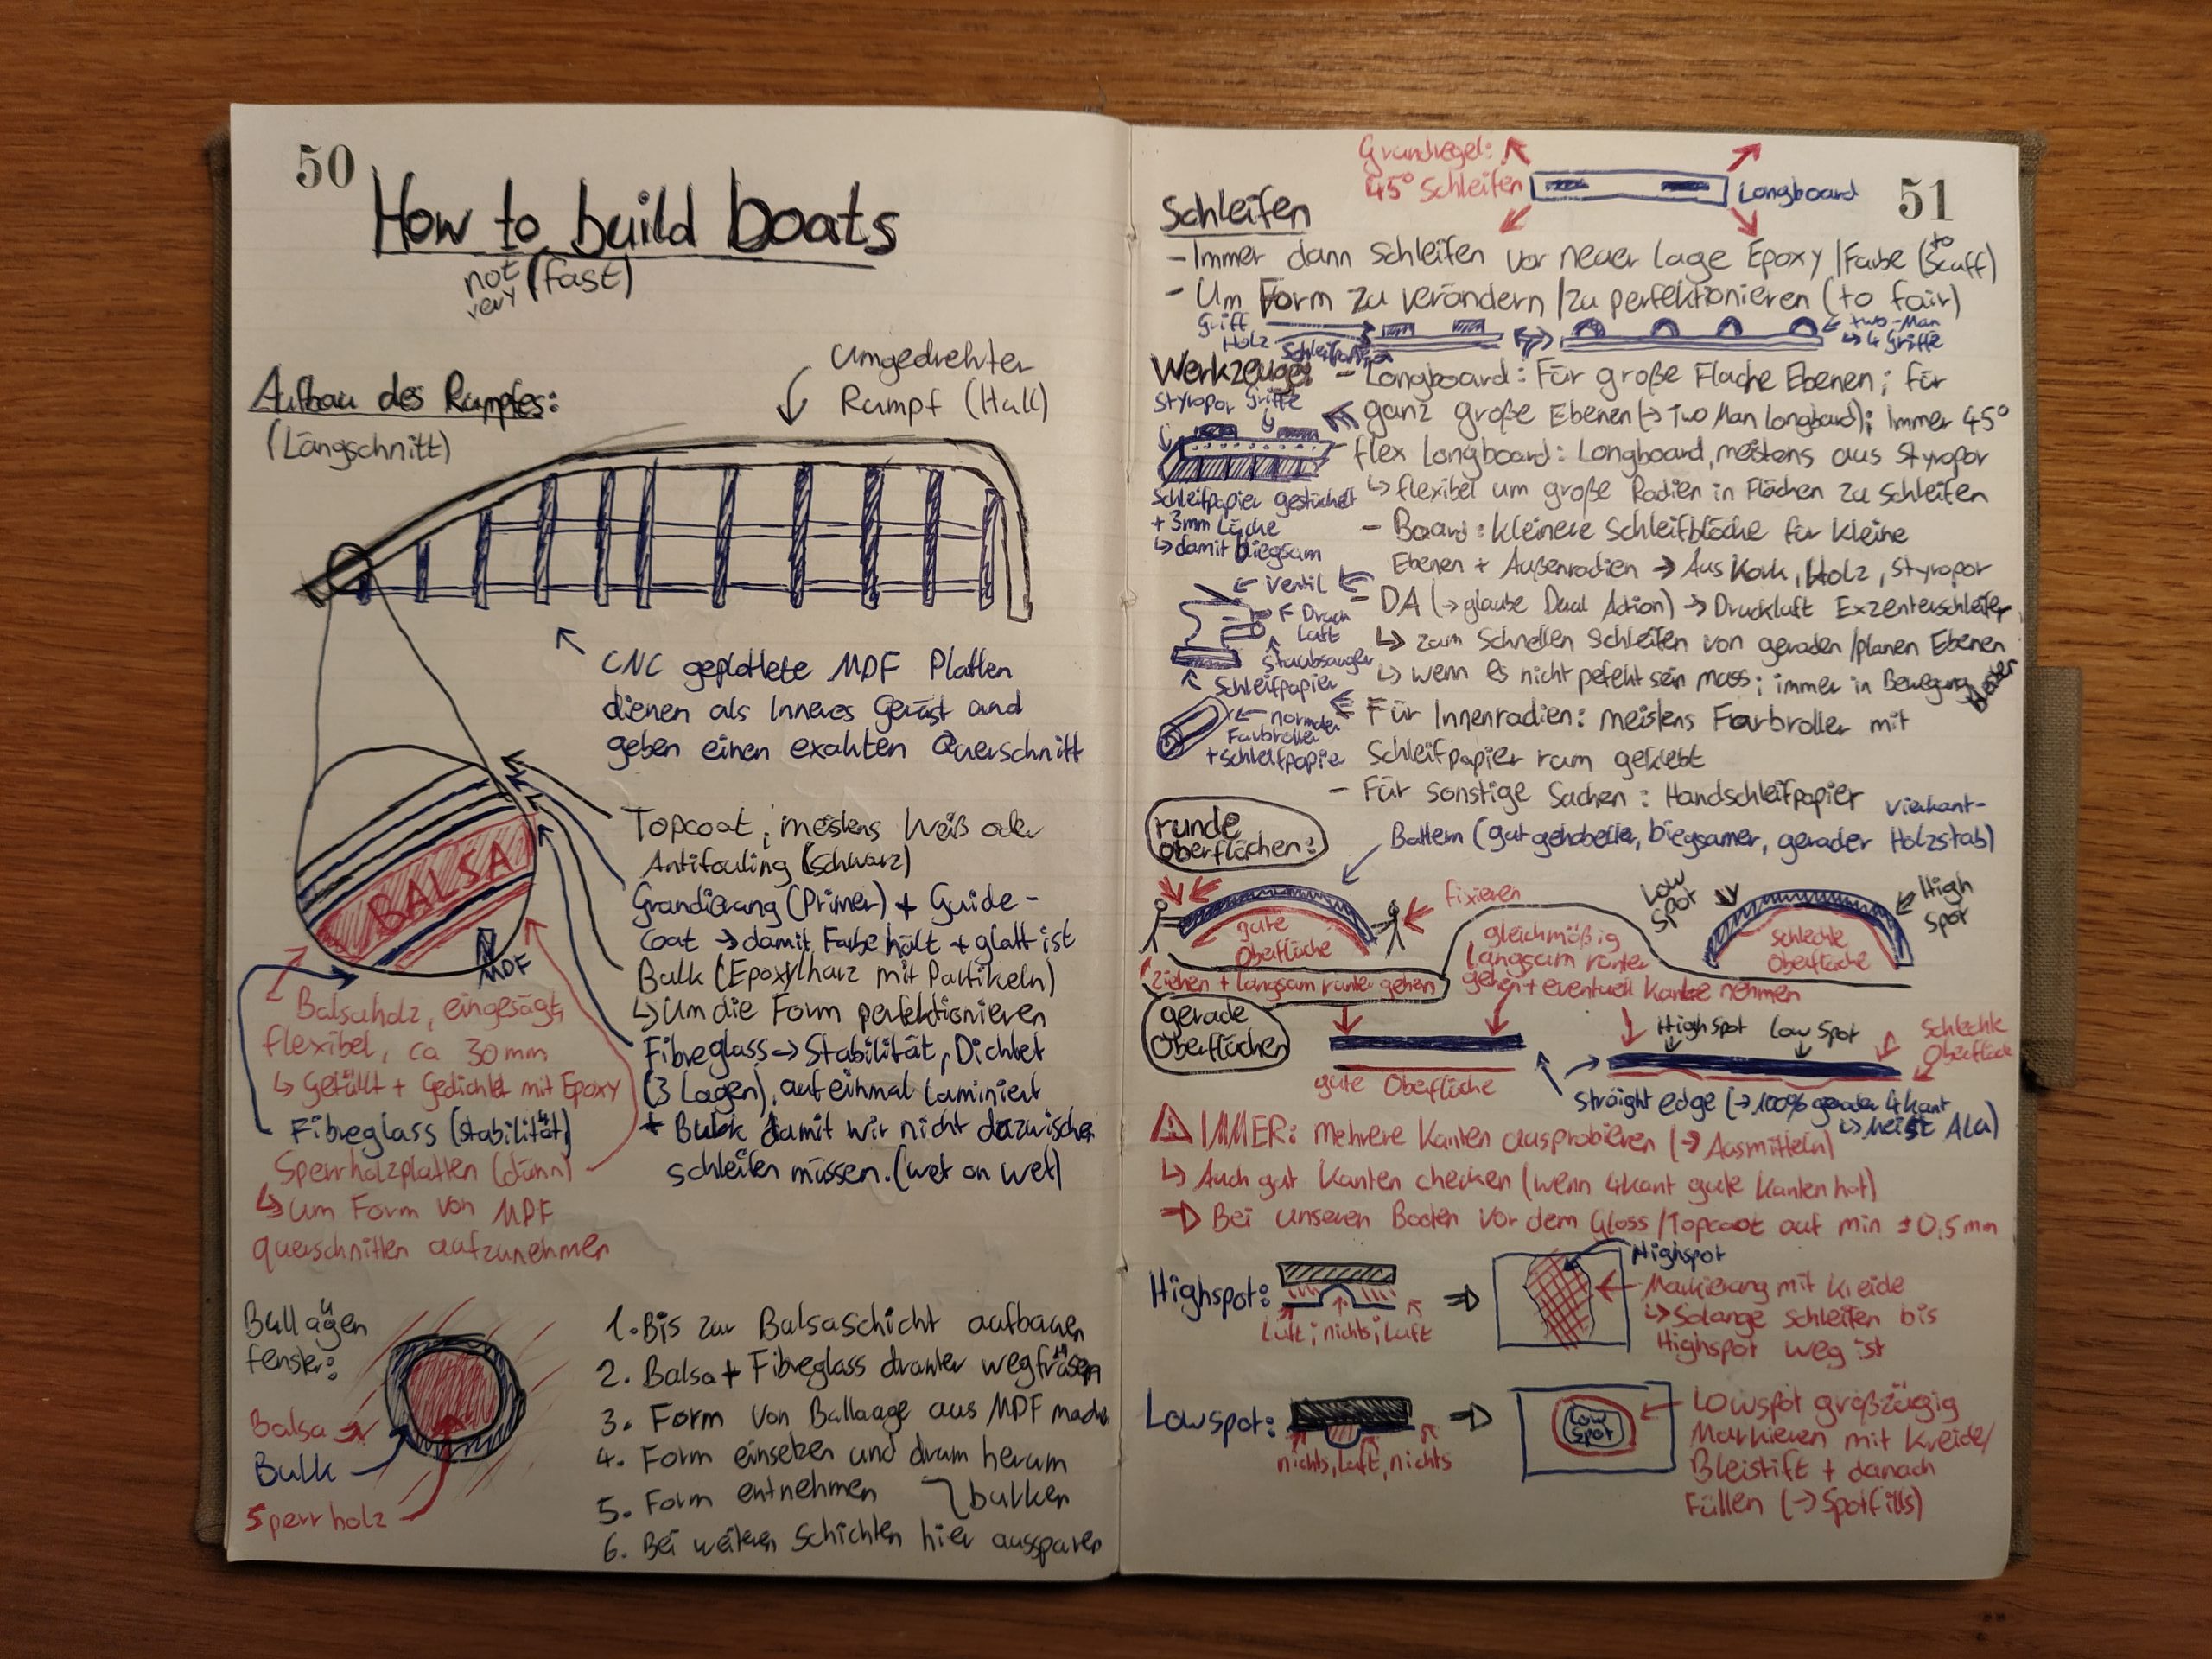 50
How to build boats
not very (fast)
Aufbau des Rumpfes:
(Längschnitt)
Umgedrehter
Rumpf (Hull)
CNC geplottete MDF Platten
dienen als Inneres Gerüst und
geben einen exakten Querschnitt
BALSA
MDF
Topcoat; meistens Weiß oder
Antifouling (schwarz)
Grundierung (Primer) + Guide-
coat → damit Farbe hält + glatt ist
Bulk (Epoxyharz mit Partikeln)
↳ Um die Form perfektionieren
Fibreglass → Stabilität, Dichtet
(3 Lagen), auf einmal laminiert
+ Bulk damit wir nicht dazwischen
schleifen müssen. (wet on wet)
Balsaholz, eingesägt,
flexibel, ca 30mm
↳ Gefüllt + Gedichtet mit Epoxy
Fibreglass (stabilität)
Sperrholzplatten (dünn)
↳ Um Form von MDF
querschnitten aufzunehmen
Bullaugen
fenster:
Balsa
Bulk
Sperrholz
1. Bis zur Balsaschicht aufbauen
2. Balsa + Fibreglass drunter wegfräsen
3. Form von Bullauge aus MDF machen
4. Form einsetzen und drum herum
bulken
5. Form entnehmen
6. Bei weiteren Schichten hier aussparen
51
Grundregel:
45° Schleifen
Longboard
Schleifen
- Immer dann schleifen vor neuer Lage Epoxy / Farbe (to scuff)
- Um Form zu verändern / zu perfektionieren (to fair)
Griff
Holz
Schleifpapier
two-Man
↳ 4 Griffe
Werkzeuge:
- Longboard: Für große Flache Ebenen; für
ganz große Ebenen (→ Two Man Longboard); Immer 45°
flex Longboard: Longboard, meistens aus Styropor
↳ flexibel um große Radien in Flächen zu schleifen
- Board: kleinere Schleifblöcke für kleine
Ebenen + Außenradien → Aus Kork, Holz, Styropor
- DA (→ glaube Dual Action) → Druckluft Exzenterschleifer
↳ zum schnellen schleifen von geraden / planen Ebenen
↳ wenn es nicht pefekt sein muss; immer in Bewegung
Für Innenradien: meistens Farbroller mit
Schleifpapier rum geklebt
- Für sonstige Sachen: Handschleifpapier
Styropor Griffe
Schleifpapier gestückelt
+ 3mm Löcher
↳ damit biegsam
Ventil
Druck
Luft
Staubsauger
Schleifpapier
normaler
Farbroller
+ Schleifpapier
runde
Oberflächen:
Battern (gut gehobelter, biegsamer, gerader Vierkant-
Holzstab)
fixieren
gute
Oberfläche
Low
Spot
High
Spot
schlechte
Oberfläche
ziehen + langsam runter gehen
gleichmäßig
langsam runter
gehen + eventuell Kante nehmen
gerade
Oberflächen
gute Oberfläche
High spot
Low Spot
Schlechte
Oberfläche
straight edge (→ 100% gerader 4kant
↳ meist Alu)
IMMER: mehrere Kanten ausprobieren (→ Ausmitteln)
↳ Auch gut Kanten checken (wenn 4kant gute Kanten hat)
⇒ Bei unseren Booten vor dem Gloss / Topcoat auf min ±0,5mm
Highspot:
Luft; nichts; Luft
Highspot
Markierung mit Kreide
↳ Solange schleifen bis
Highspot weg ist
Lowspot:
nichts, Luft, nichts
Low
Spot
Lowspot großzügig
Markieren mit Kreide/
Bleistift + danach
Füllen (→ Spotfills)